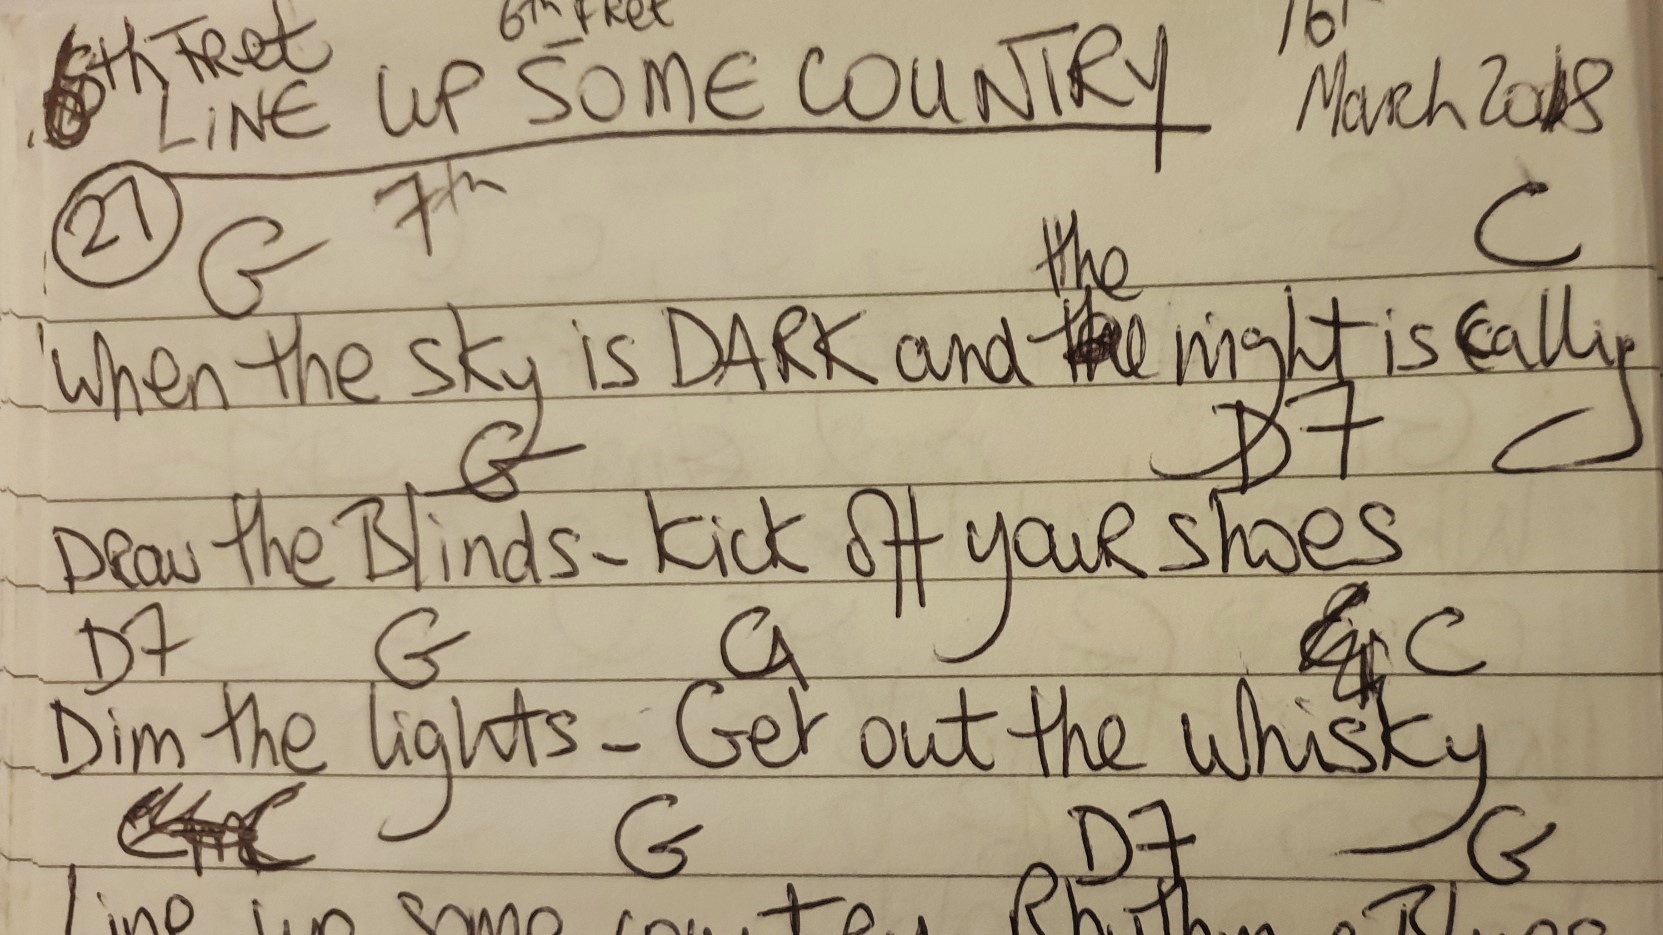 6th Fret 16th
5th Fret
LINE UP SOME COUNTRY March 2018
27 G 7th C
the
When the sky is DARK and the night is calling
G D7
Draw the Blinds - kick off your shoes
D7 G G C
Dim the lights - Get out the whisky
C G D7 G
Line up some country Rhythm & Blues